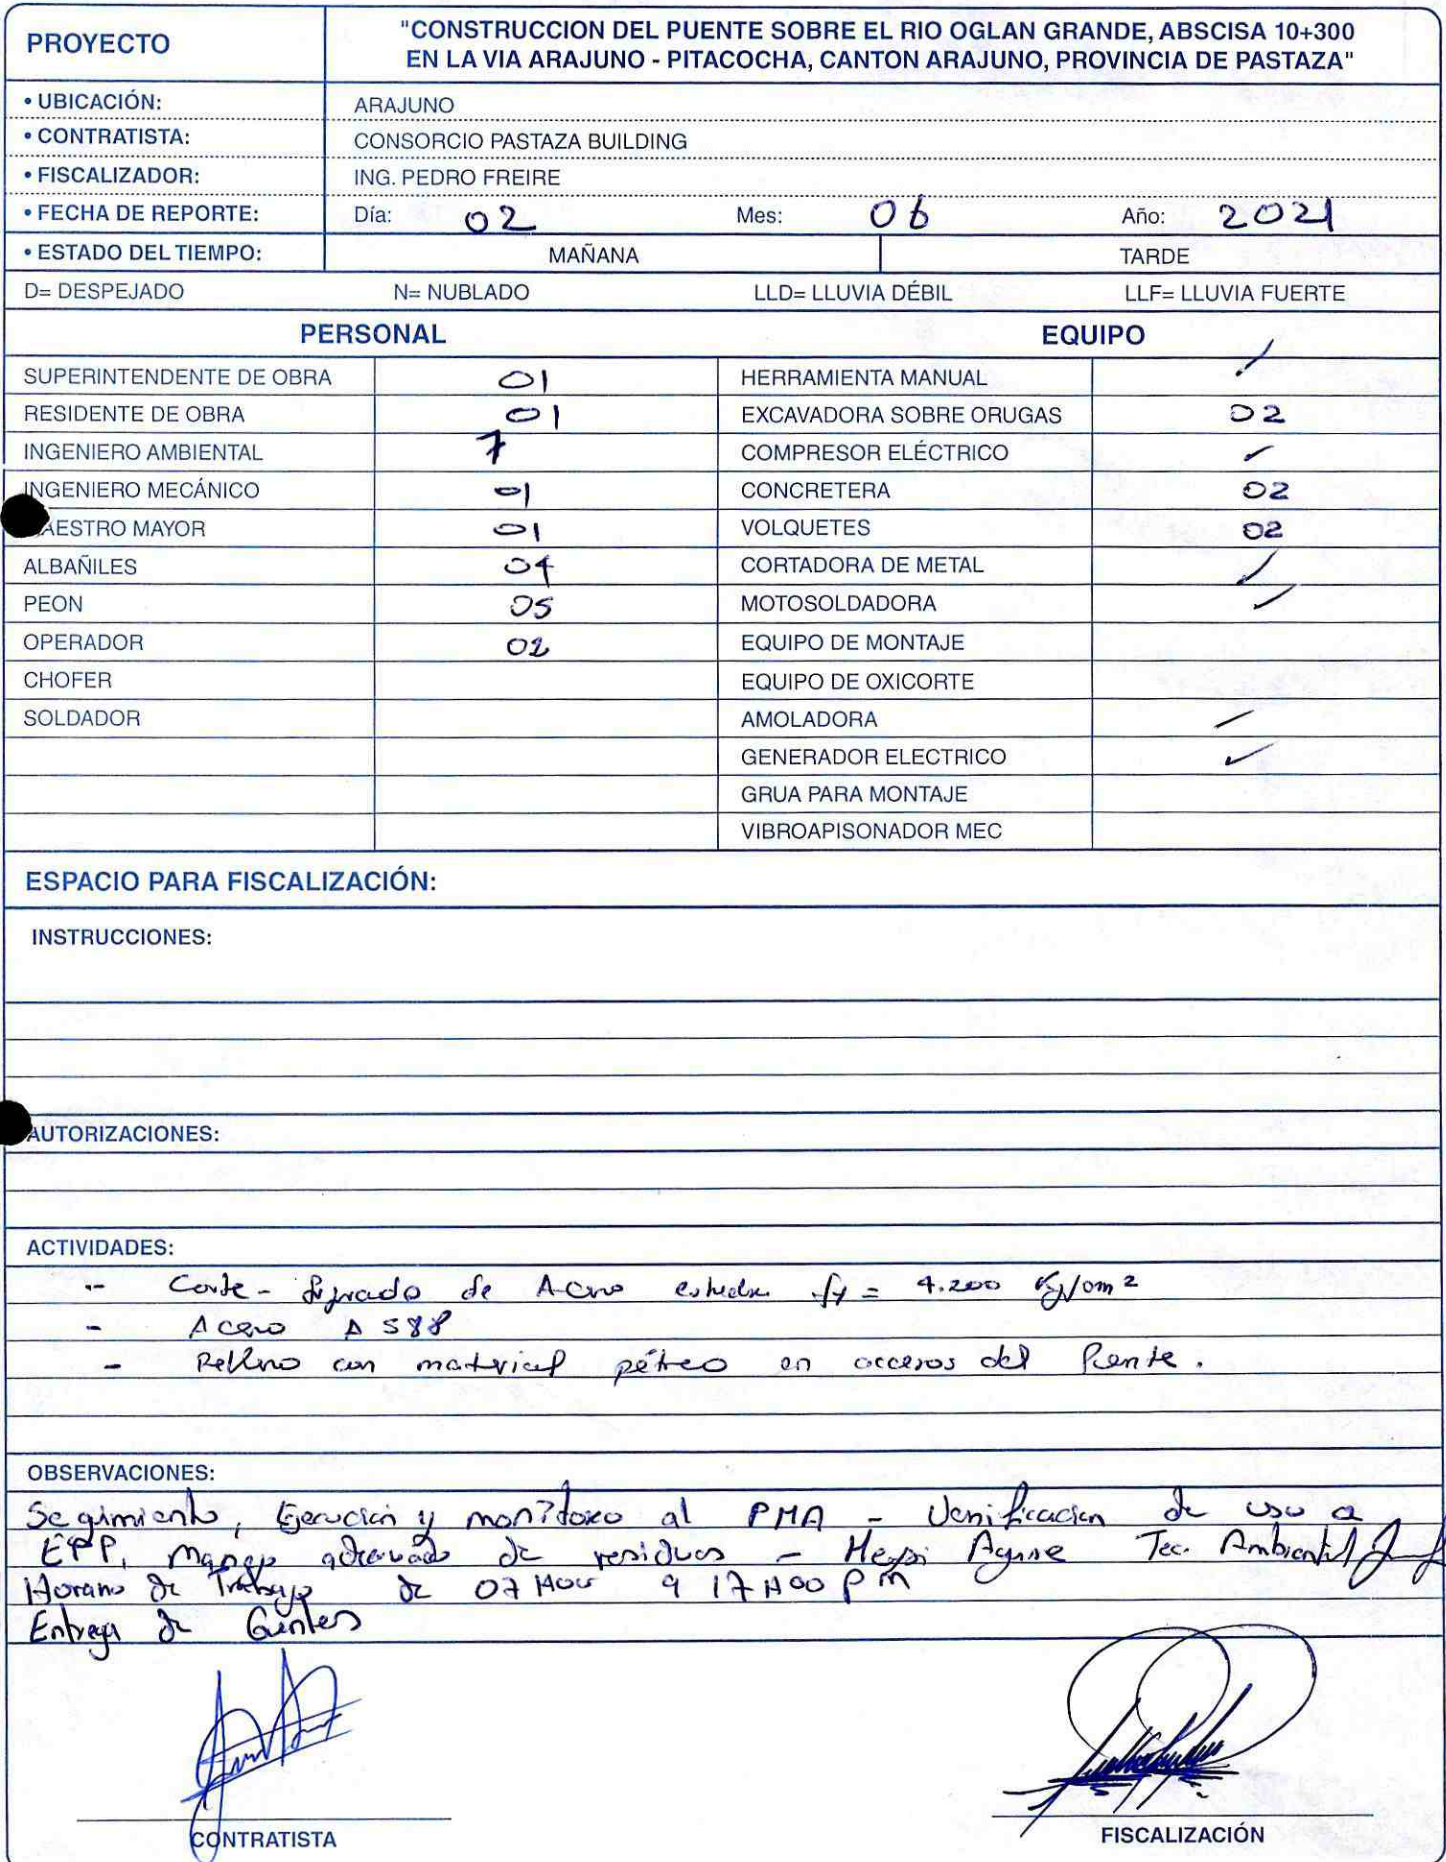 PROYECTO
"CONSTRUCCION DEL PUENTE SOBRE EL RIO OGLAN GRANDE, ABSCISA 10+300
EN LA VIA ARAJUNO - PITACOCHA, CANTON ARAJUNO, PROVINCIA DE PASTAZA"
• UBICACIÓN: ARAJUNO
• CONTRATISTA: CONSORCIO PASTAZA BUILDING
• FISCALIZADOR: ING. PEDRO FREIRE
• FECHA DE REPORTE: Día: 02 Mes: 06 Año: 2021
• ESTADO DEL TIEMPO: MAÑANA TARDE
D= DESPEJADO N= NUBLADO LLD= LLUVIA DÉBIL LLF= LLUVIA FUERTE
PERSONAL EQUIPO
SUPERINTENDENTE DE OBRA 01 HERRAMIENTA MANUAL ✓
RESIDENTE DE OBRA 01 EXCAVADORA SOBRE ORUGAS 02
INGENIERO AMBIENTAL COMPRESOR ELÉCTRICO ✓
INGENIERO MECÁNICO 01 CONCRETERA 02
AESTRO MAYOR 01 VOLQUETES 02
ALBAÑILES 04 CORTADORA DE METAL ✓
PEON 05 MOTOSOLDADORA ✓
OPERADOR 02 EQUIPO DE MONTAJE
CHOFER EQUIPO DE OXICORTE
SOLDADOR AMOLADORA ✓
GENERADOR ELECTRICO ✓
GRUA PARA MONTAJE
VIBROAPISONADOR MEC
ESPACIO PARA FISCALIZACIÓN:
INSTRUCCIONES:
AUTORIZACIONES:
ACTIVIDADES:
- Corte - figurado de Acero fy = 4.200 Kg/cm2
- Acero A 588
- Relleno con material pétreo en accesos del Puente.
OBSERVACIONES:
Segimiento, Ejerución y monitoreo al PMA - Verificacion de uso a
EPP, Manejo adecuado de residuos - Tec. Ambiental
Horario de Trabajo de 07 H00 a 17 H00 pm
Entrega de
CONTRATISTA FISCALIZACIÓN